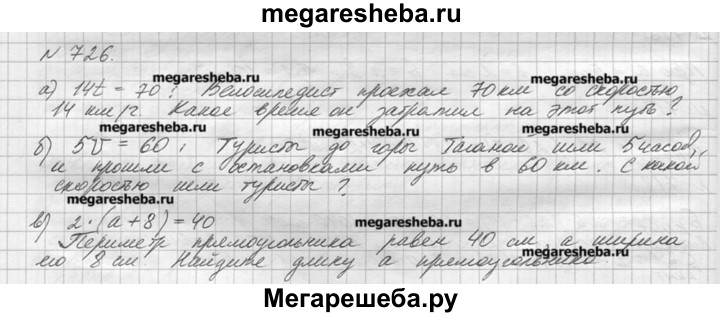 megaresheba.ru
N 726.
megaresheba.ru
а) 14t = 70; Велосипедист проехал 70 км со скоростью
14 км/г. Какое время он затратил на этот путь?
megaresheba.ru megaresheba.ru megaresheba.ru
б) 5V = 60; Туристы до горы Таганай шли 5 часов,
и прошли с остановками путь в 60 км. С какой
скоростью шли туристы?
megaresheba.ru
в) 2·(a+8) = 40 megaresheba.ru
Периметр прямоугольника равен 40 см, а ширина
его 8 см. Найдите длину а прямоугольника.
megaresheba.ru
Мегарешеба.ру